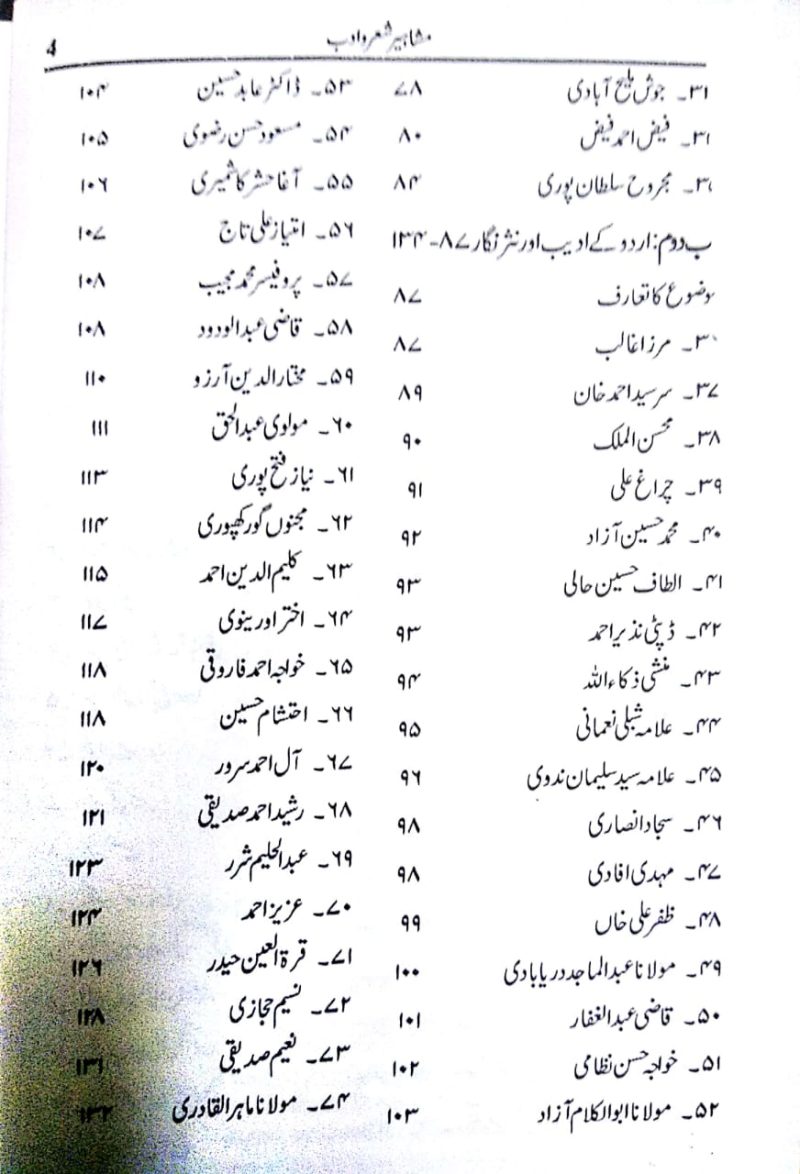 مشاہیر شعر و ادب 4
۳۱۔ جوش ملیح آبادی ۷۸
۳۱۔ فیض احمد فیض ۸۰
۳۱۔ مجروح سلطان پوری ۸۴
ب دوم: اردو کے ادیب اور نثر نگار ۸۷-۱۳۴
وضوع کا تعارف ۸۷
۳۰۔ مرزا غالب ۸۷
۳۷۔ سر سید احمد خان ۸۹
۳۸۔ محسن الملک ۹۰
۳۹۔ چراغ علی ۹۱
۴۰۔ محمد حسین آزاد ۹۲
۴۱۔ الطاف حسین حالی ۹۳
۴۲۔ ڈپٹی نذیر احمد ۹۳
۴۳۔ منشی ذکاء اللہ ۹۴
۴۴۔ علامہ شبلی نعمانی ۹۵
۴۵۔ علامہ سید سلیمان ندوی ۹۶
۴۶۔ سجاد انصاری ۹۸
۴۷۔ مہدی افادی ۹۸
۴۸۔ ظفر علی خاں ۹۹
۴۹۔ مولانا عبد الماجد دریابادی ۱۰۰
۵۰۔ قاضی عبد الغفار ۱۰۱
۵۱۔ خواجہ حسن نظامی ۱۰۲
۵۲۔ مولانا ابوالکلام آزاد ۱۰۳
۵۳۔ ڈاکٹر عابد حسین ۱۰۴
۵۴۔ مسعود حسن رضوی ۱۰۵
۵۵۔ آغا حشر کاشمیری ۱۰۶
۵۶۔ امتیاز علی تاج ۱۰۷
۵۷۔ پروفیسر محمد مجیب ۱۰۸
۵۸۔ قاضی عبد الودود ۱۰۸
۵۹۔ مختار الدین آرزو ۱۱۰
۶۰۔ مولوی عبد الحق ۱۱۱
۶۱۔ نیاز فتح پوری ۱۱۳
۶۲۔ مجنوں گورکھپوری ۱۱۴
۶۳۔ کلیم الدین احمد ۱۱۵
۶۴۔ اختر اورینوی ۱۱۷
۶۵۔ خواجہ احمد فاروقی ۱۱۸
۶۶۔ احتشام حسین ۱۱۸
۶۷۔ آل احمد سرور ۱۲۰
۶۸۔ رشید احمد صدیقی ۱۲۱
۶۹۔ عبد الحلیم شرر ۱۲۳
۷۰۔ عزیز احمد ۱۲۴
۷۱۔ قرۃ العین حیدر ۱۲۶
۷۲۔ نسیم حجازی ۱۲۸
۷۳۔ نعیم صدیقی ۱۳۱
۷۴۔ مولانا ماہر القادری ۱۳۲